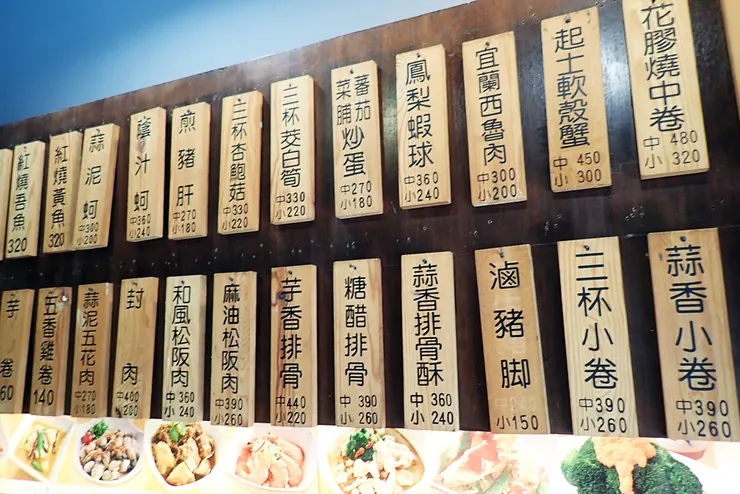 花膠燒中卷
中480
小320
起士軟殼蟹
中450
小300
宜蘭西魯肉
中300
小200
鳳梨蝦球
中360
小240
蕃茄
菜脯
炒蛋
中270
小180
三杯茭白筍
中330
小220
三杯杏鮑菇
中330
小220
煎豬肝
中270
小180
蔭汁蚵
中360
小240
蒜泥蚵
中300
小200
紅燒黃魚
320
紅燒吾魚
320
蒜香小卷
中390
小260
三杯小卷
中390
小260
滷豬脚
小150
蒜香排骨酥
中360
小240
糖醋排骨
中390
小260
芋香排骨
中440
小220
麻油松阪肉
中390
小260
和風松阪肉
中360
小240
封肉
中400
小200
蒜泥五花肉
中270
小180
五香雞卷
140
芋卷
60